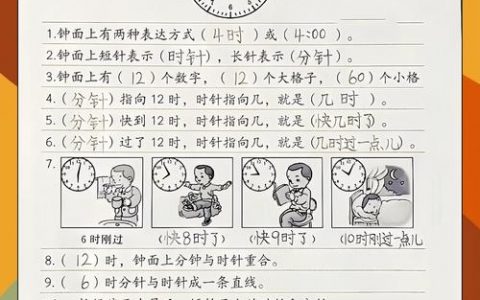 6
1.钟面上有两种表达方式(4时)或(4:00)。
2.钟面上短针表示(时针),长针表示(分针)。
3.钟面上有(12)个数字,(12)个大格子,(60)个小格
4.(分针)指向12时,时针指向几,就是(几时)。
5.(分针)快到12时,时针指向几,就是(快几时了)。
6.(分针)过了12时,时针指向几,就是(几时过一点儿)。
7.
6时刚过 (快8时了) (快9时了) (10时刚过一点儿
8.(12)时,钟面上分针与时针重合。
9.(6)时分针与时针成一条直线。